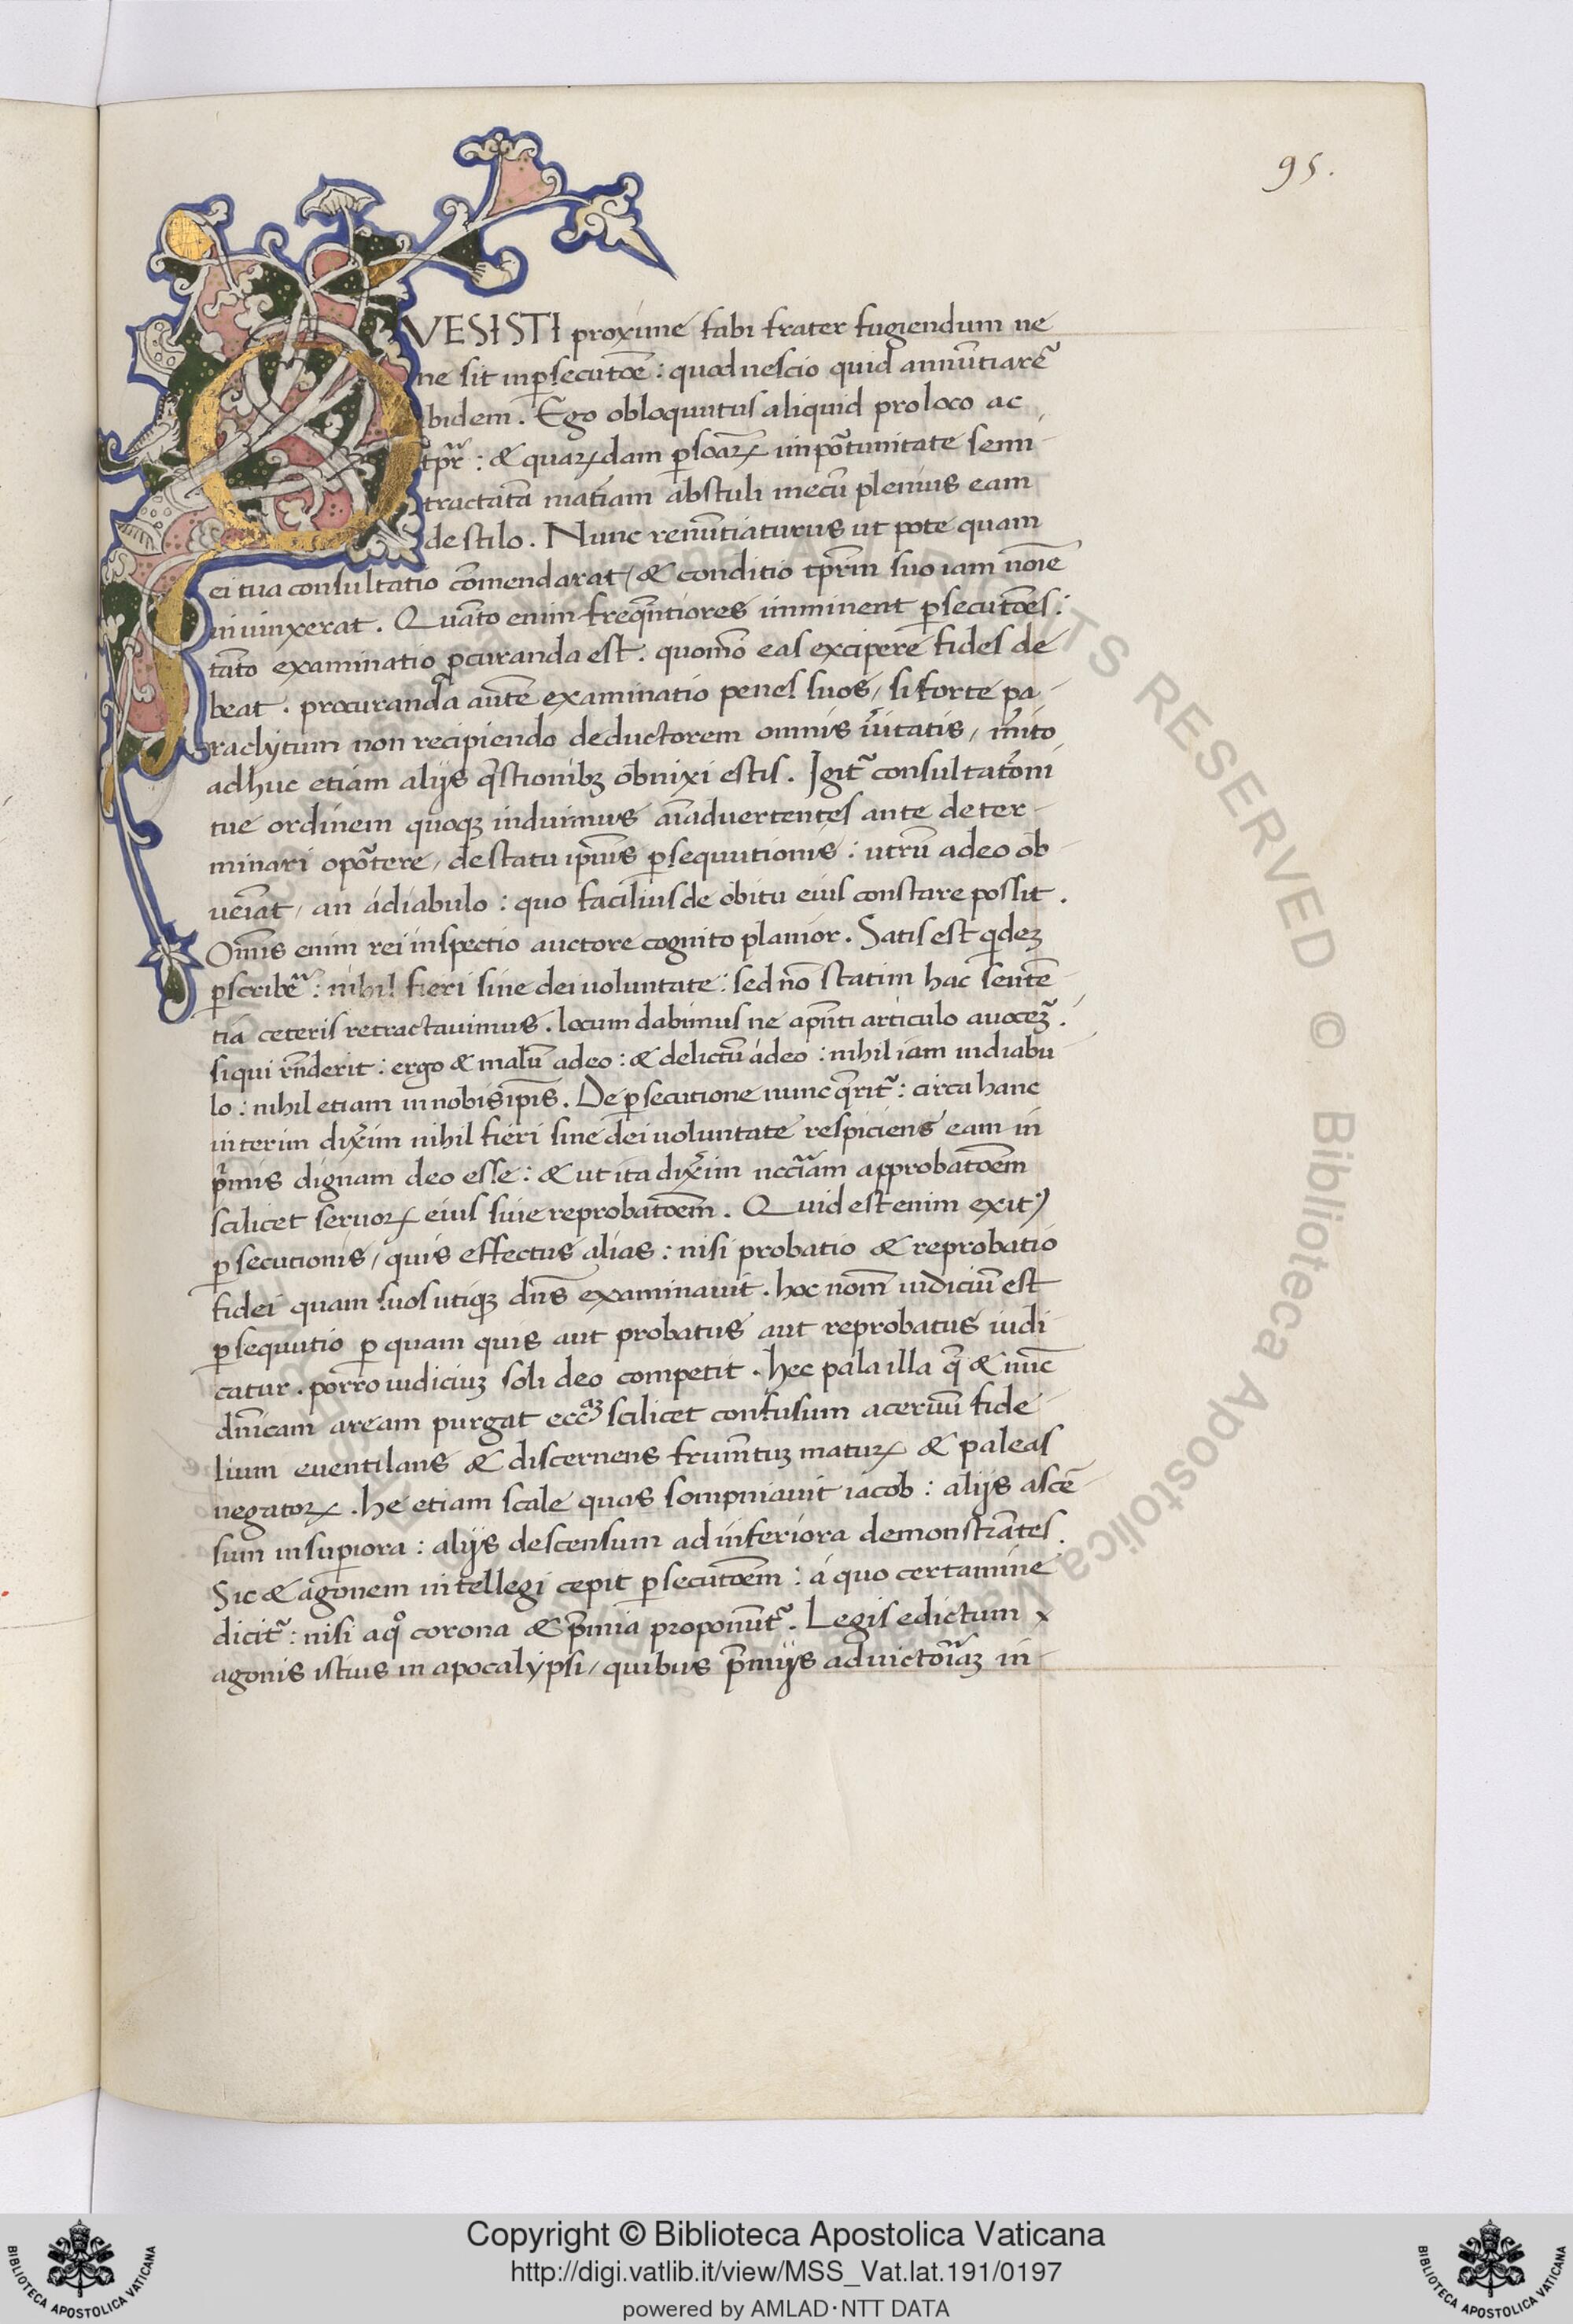 95.
QVESISTI proxime fabi frater fugiendum ne
ne sit in ꝑsecutōe: quod nescio quid annūtiare᷑
ibidem. Ego obloquutus aliquid pro loco ac
tp̄r: & quaꝝdam ꝑsōaꝝ inpōtunitate semi-
tractatā mat̄iam abstuli mecū plenius eam
de stilo. Nunc renūtiaturus ut pote quam
ei tua consultatio cōmendarat/ & conditio tp̄rm suo iam nōie
iniunxerat. Quāto enim freq̄ntiores imminent ꝑsecutōes:
tāto examinatio ꝓcuranda est: quomō eas excipere fides de
beat. procuranda autē examinatio penes suos/ si forte pa-
raclytum non recipiendo deductorem omnis ūitatis/ m̄ito
adhuc etiam alijs q̄stionibꝫ obnixi estis. Igit᷑ consultatōni
tue ordinem quoqꝫ induimus aīaduertentes ante deter-
minari opōtere/ de statu ip̄ius ꝑsequutionis: utrū adeo ob
ueīat/ an adiabulo: quo facilius de obitu eius constare possit.
Om̄is enim rei inspectio auctore cognito planior. Satis est qͥdeꝫ
ꝑscribe᷑: nihil fieri sine dei uoluntate: sed nō statim hac sentē-
tia ceteris retractauimus. locum dabimus ne ap̄nti articulo auoceꝫ᷑.
siqui rn̄derit: ergo & malū adeo: & delictū adeo: nihil iam in diabu
lo: nihil etiam in nobis ip̄is. De ꝑsecutione nunc q̄rit᷑: circa hanc
interim dix̄im nihil fieri sine dei uoluntate respiciens eam in
p̄mis dignam deo esse: & ut ita dix̄im nccīam approbatōem
scilicet seruoꝝ eius siue reprobatōem. Quid est enim exitꝰ
ꝑsecutionis/ quis effectus alias: nisi probatio & reprobatio
fidei quam suos utiqꝫ dn̄s examinauit. hoc nom̄ iudiciū est
ꝑsequutio ꝑ quam quis aut probatus aut reprobatus iudi
catur. porro iudiciuꝫ soli deo competit. hec pala illa q̄ & nūc
dn̄icam aream purgat ecc̄aꝫ scilicet confusum aceruū fide-
lium euentilans & discernens frum̄tuꝫ matuꝝ & paleas
negatoꝝ. he etiam scale quas sompniauit iacob: alijs ascē-
sum in suꝑiora: alijs descensum ad inferiora demonstrātes.
Sic & agonem intellegi cepit ꝑsecutōem: a quo certamine
dicit᷑: nisi aqͦ corona & p̄mia proponūt᷑. Legis edictum x
agonis istius in apocalypsi/ quibus p̄mijs ad uictorīaꝫ in-
Copyright © Biblioteca Apostolica Vaticana
http://digi.vatlib.it/view/MSS_Vat.lat.191/0197
powered by AMLAD·NTT DATA